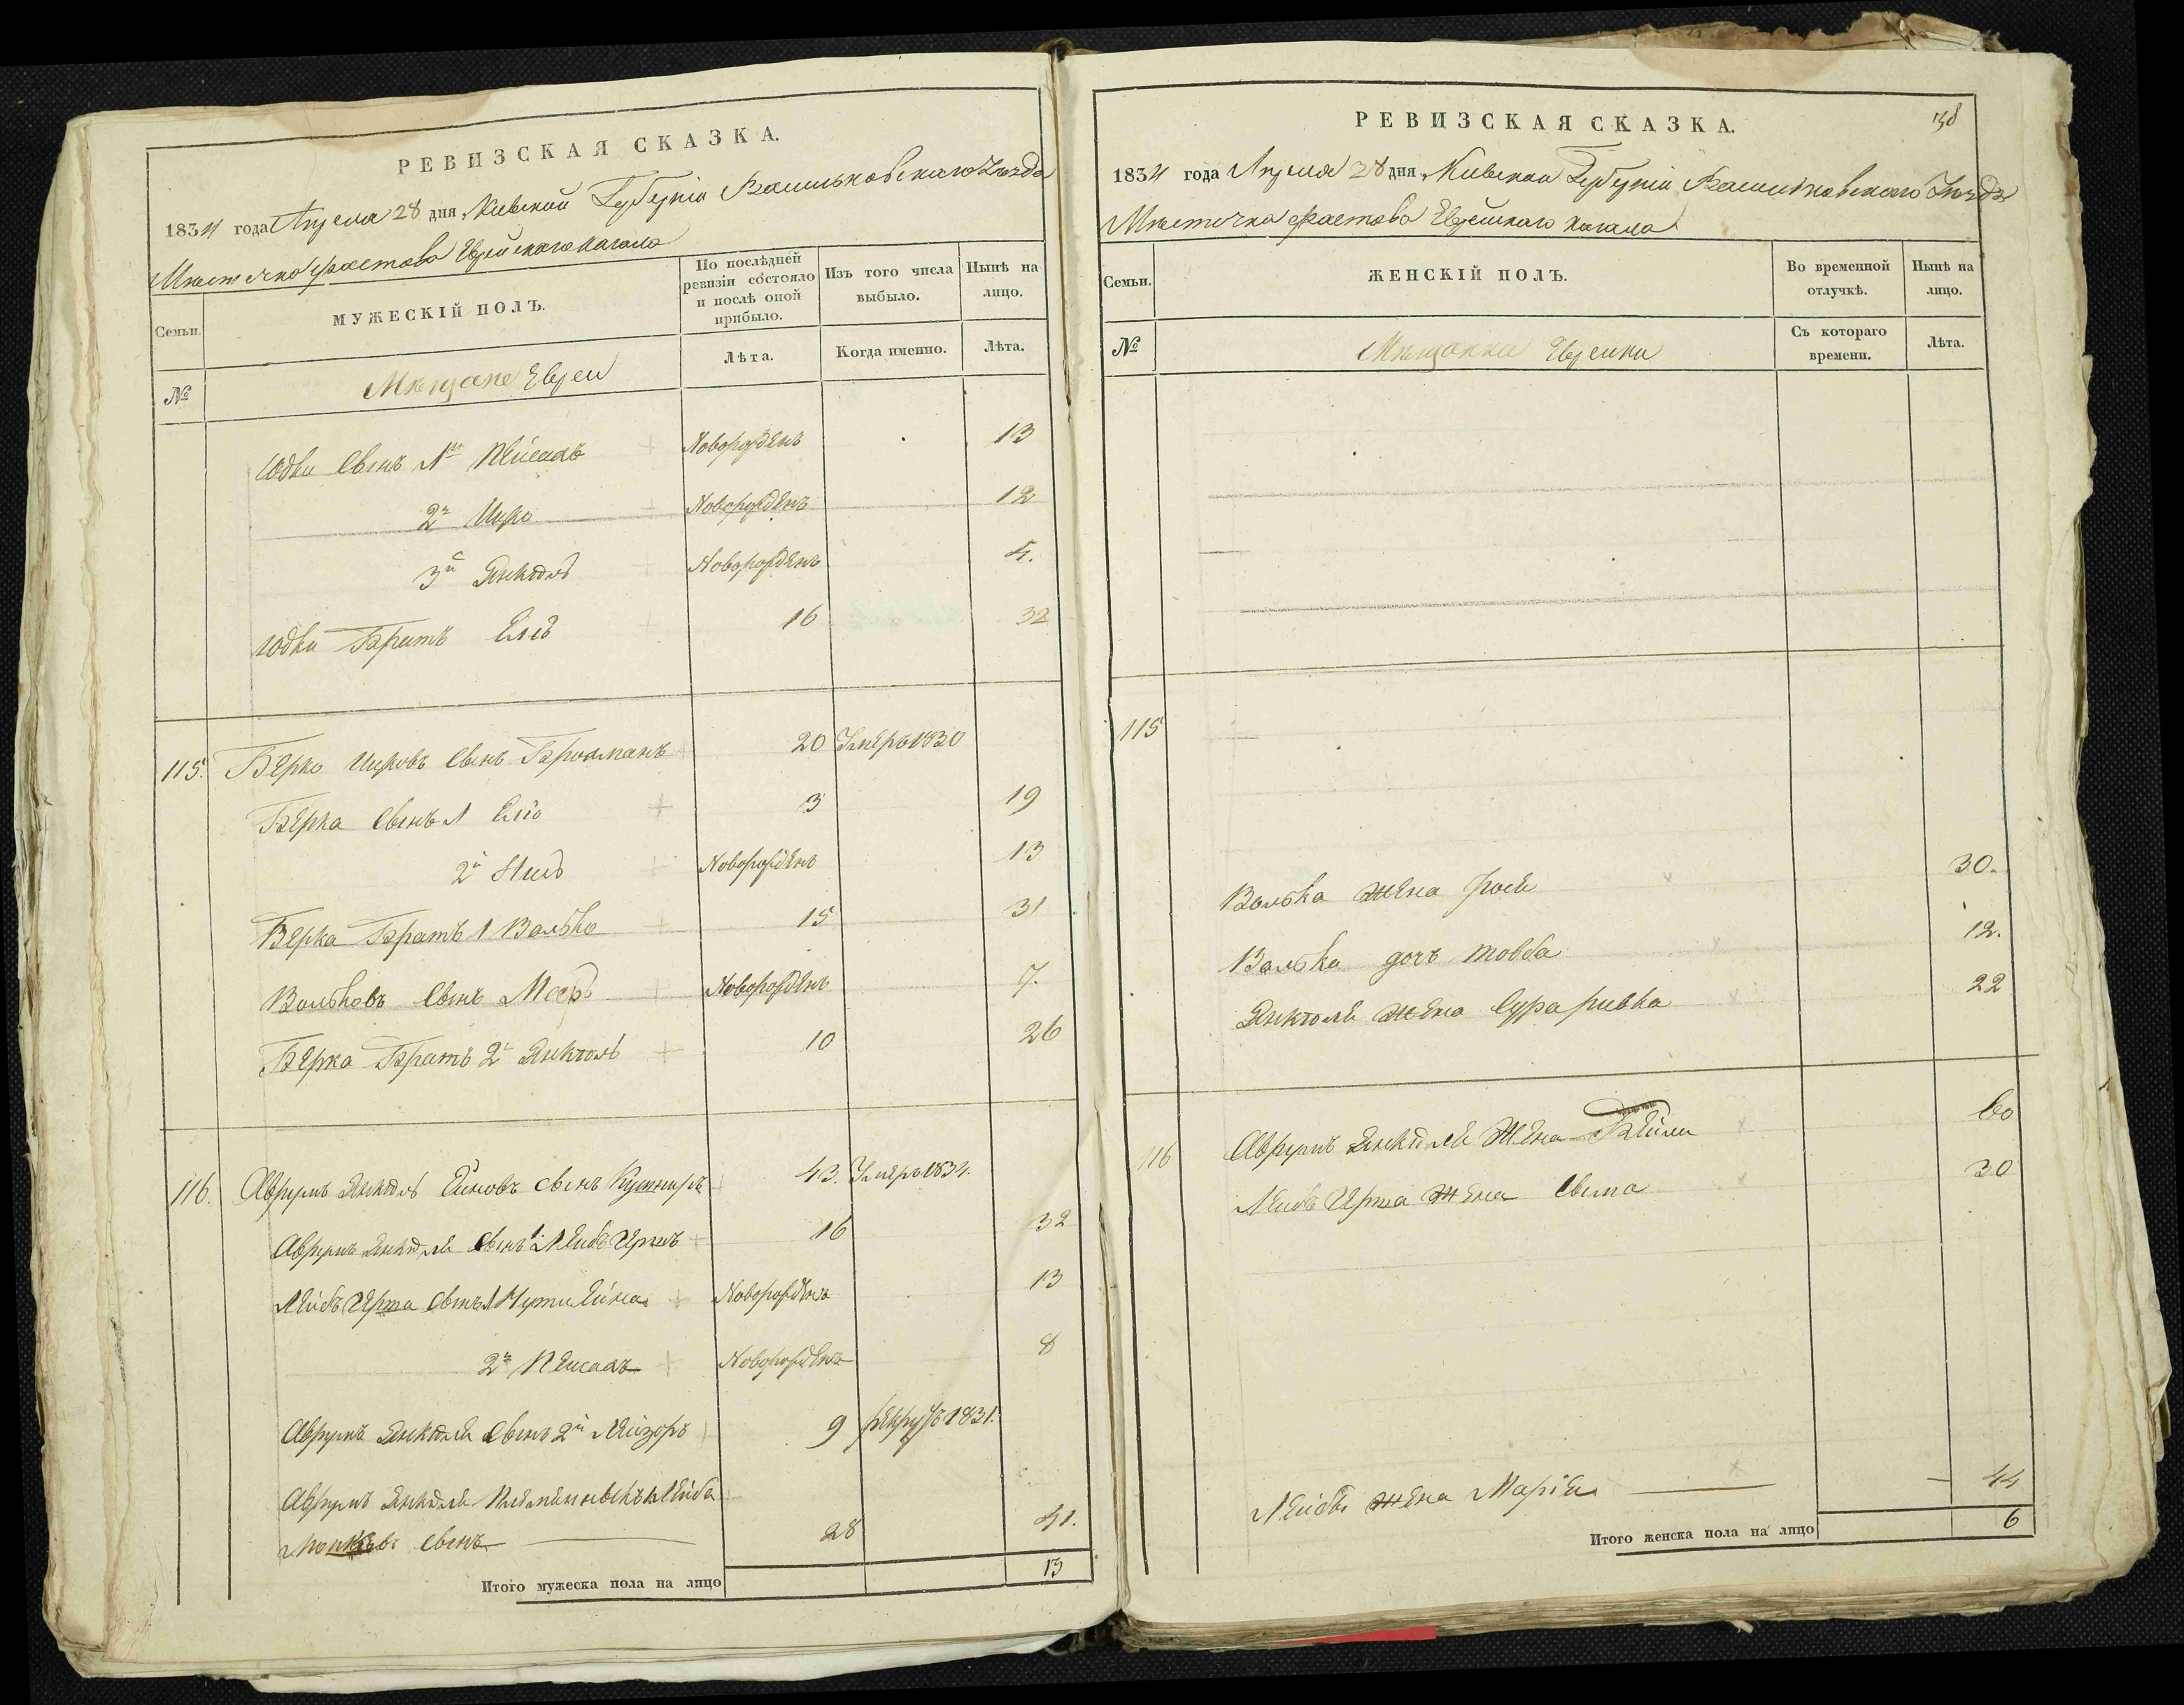 РЕВИЗСКАЯ СКАЗКА.
1834 года Апреля 28 дня, Киевской Губерніи Васильковскаго Уезда
Местечка Фастова Еврейскаго Кагала
Семьи.
МУЖЕСКІЙ ПОЛЪ.
По послѣдней ревизіи состояло и послѣ оной прибыло.
Изъ того числа выбыло.
Нынѣ на лицо.
№
Мещане Евреи
Лѣта.
Когда именно.
Лѣта.
Юдки Сынъ 1й Пейсахъ Новорожденъ 13
2й Ицко Новорожденъ 12
3й Янкель Новорожденъ 4.
Юдки Братъ Еліо 16 32
115. Берко Ицковъ Сынъ 20 Умеръ 1830
Берка Сынъ 1 Еліо 3 19
2й Новорожденъ 13
Берка Братъ 1 Волько 15 31
Вольковъ Сынъ Мееръ Новорожденъ 7.
Берка Братъ 2й Янкель 10 26
116. Аврумъ Янкель сынъ Кушниръ 43. Умеръ 1834.
Аврумъ Янкеля Сынъ 1 Лейбъ Гершъ 16 32
Лейбъ Герша Сынъ 1 Новорожденъ 13
2й Пейсахъ Новорожденъ 8
Аврумъ Янкеля Сынъ 2й Лейзоръ 9 рекрутъ 1831.
Аврумъ Янкеля Племенникъ Лейба
сынъ 28 41.
Итого мужеска пола на лицо 13
РЕВИЗСКАЯ СКАЗКА.
138
1834 года Апреля 28 дня, Киевской Губерніи Васильковскаго Уезда
Местечка Фастова Еврейскаго Кагала
Семьи.
ЖЕНСКІЙ ПОЛЪ.
Во временной отлучкѣ.
Нынѣ на лицо.
№
Мещанки Еврейки
Съ котораго времени.
Лѣта.
115
Волька жена 30.
Волька дочь Товба 12.
Янкеля жена Сура ривка 22
116 Аврумъ Янкеля Жена Бейли 60
Лейбъ Герша Жена Сыма 30
Лейбы жена Марія — 44
Итого женска пола на лицо 6